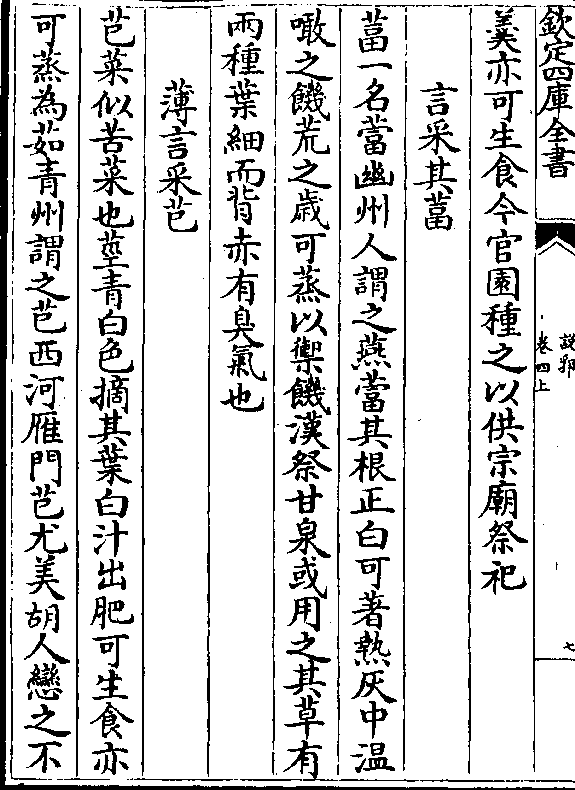 欽定四庫全書
說郛
卷四上
七
羮亦可生食今官園種之以供宗廟祭祀
言采其葍
葍一名䔰幽州人謂之燕䔰其根正白可著熱灰中温
噉之饑荒之歲可蒸以禦饑漢祭甘泉或用之其草有
兩種葉細而背赤有臭氣也
薄言采芑
芑菜似苦菜也莖青白色摘其葉白汁出肥可生食亦
可蒸為茹青州謂之芑西河雁門芑尤美胡人戀之不